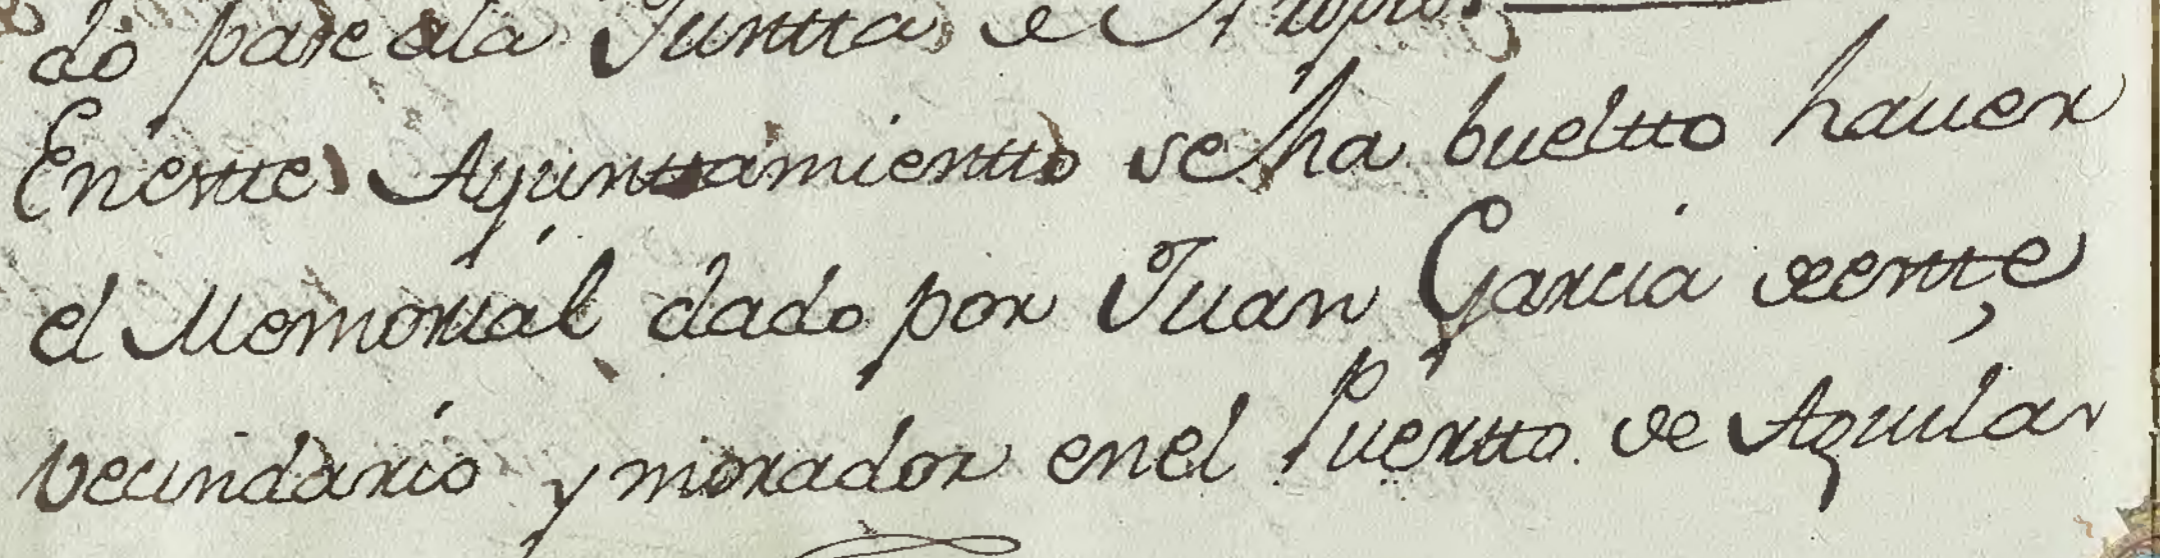 do pase ala Juntta de Propios.
Enestte Ayunttamientto se ha bueltto hauer
el Memorial dado por Juan Garcia deestte
Vecindario y morador enel Puertto de Aguilas